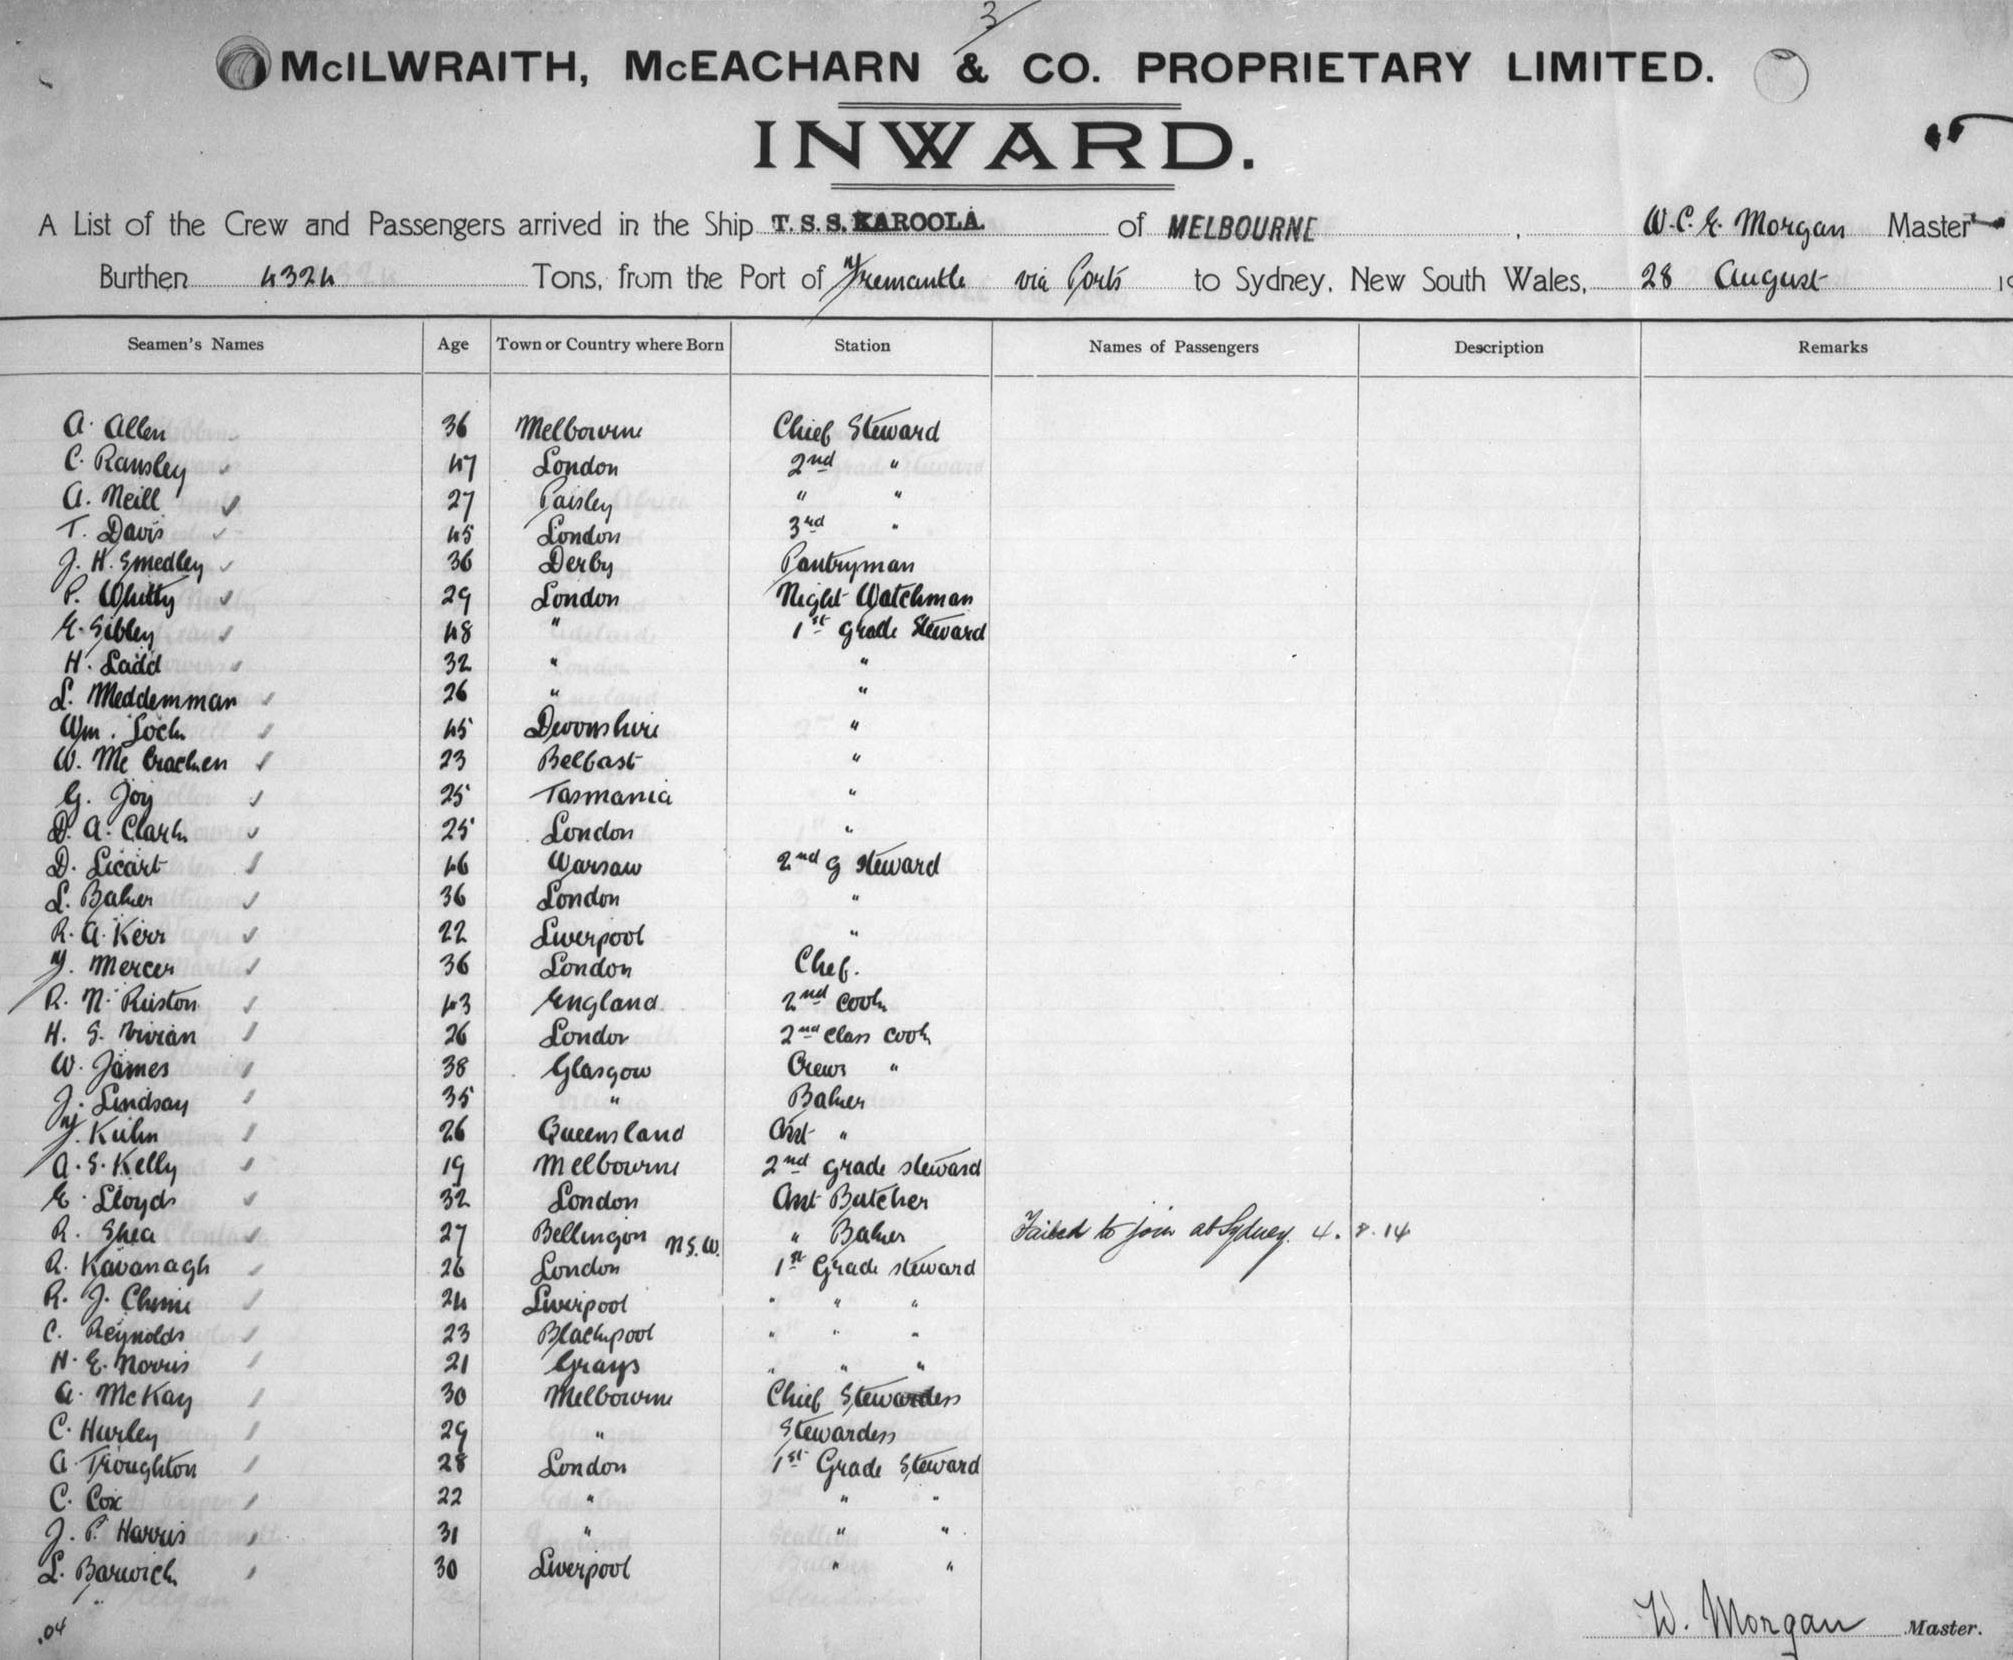 3
McILWRAITH, McEACHARN & CO. PROPRIETARY LIMITED.
INWARD.
A List of the Crew and Passengers arrived in the Ship T. S. S. KAROOLA. of MELBOURNE, W. C. E. Morgan Master
Burthen 4324 Tons, from the Port of Fremantle via Ports to Sydney, New South Wales, 28 August 19
Seamen's Names Age Town or Country where Born Station Names of Passengers Description Remarks
A. Allen 36 Melbourne Chief Steward
C. Ransley 47 London 2nd "
A. Neill 27 Paisley " "
T. Davis 45 London 3rd "
J. H. Smedley 36 Derby Pantryman
P. Whitty 29 London Night Watchman
E. Sibley 48 " 1st Grade Steward
H. Ladd 32 " "
L. Meddemman 26 " "
Wm. Lock 45 Devonshire "
W. Mc Cracken 23 Belfast "
G. Joy 25 Tasmania "
D. A. Clark 25 London "
D. Licart 46 Warsaw 2nd G Steward
L. Baker 36 London "
R. A. Kerr 22 Liverpool "
F. Mercer 36 London Chef.
R. N. Ruston 43 England 2nd Cook
H. S. Vivian 26 London 2nd Class Cook
W. James 38 Glasgow Crews "
J. Lindsay 35 " Baker
F. Kuhn 26 Queensland Asst "
A. S. Kelly 19 Melbourne 2nd grade steward
E. Lloyds 32 London Asst Butcher
R. Shea 27 Bellingon N.S.W. " Baker Failed to join at Sydney. 4. 8. 14
R. Kavanagh 26 London 1st Grade steward
R. J. 24 Liverpool " " "
C. Reynolds 23 Blackpool " " "
H. E. Norris 21 Grays " " "
A. McKay 30 Melbourne Chief Stewardess
C. Hurley 29 " Stewardess
A. Troughton 28 London 1st Grade Steward
C. Cox 22 " " "
J. P. Harris 31 " " "
L. Barwick 30 Liverpool " "
.04
W. Morgan Master.